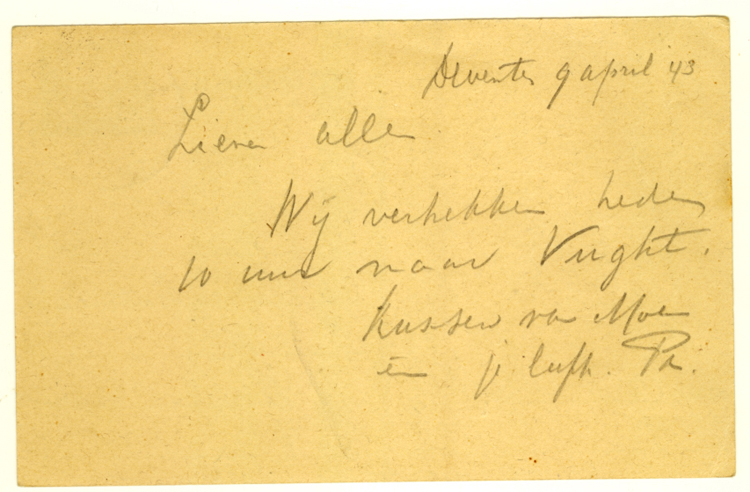 Deventer 9 april 43
Lieve allen
Wij vertrekken heden
10 uur naar Vught.
Kussen van Moe
en je liefh. Pa.